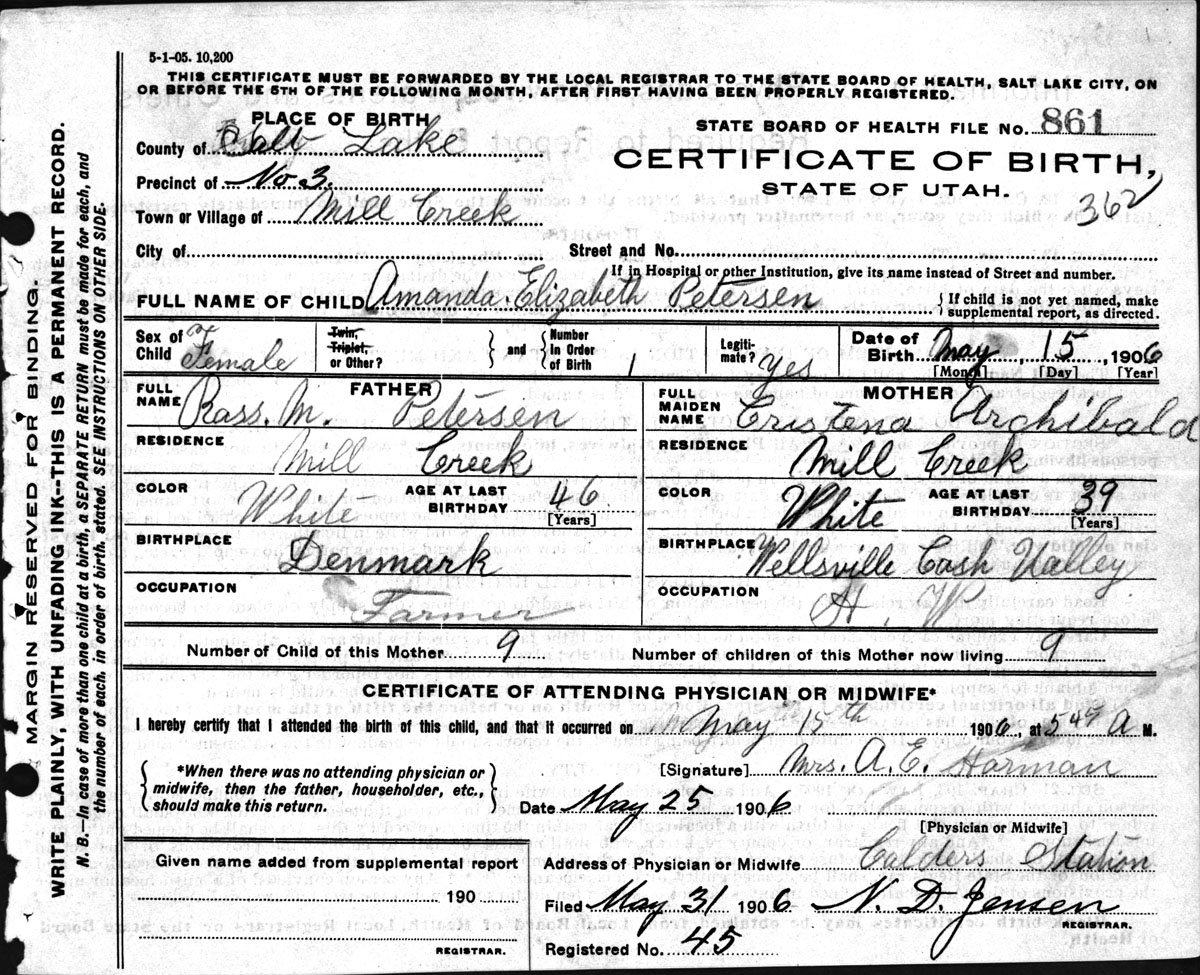 5-1-05. 10,200
THIS CERTIFICATE MUST BE FORWARDED BY THE LOCAL REGISTRAR TO THE STATE BOARD OF HEALTH, SALT LAKE CITY, ON
OR BEFORE THE 5TH OF THE FOLLOWING MONTH, AFTER FIRST HAVING BEEN PROPERLY REGISTERED.
PLACE OF BIRTH
STATE BOARD OF HEALTH FILE No. 861
County of Salt Lake
CERTIFICATE OF BIRTH,
Precinct of No 3.
STATE OF UTAH.
362
Town or Village of Mill Creek
City of Street and No.
If in Hospital or other Institution, give its name instead of Street and number.
FULL NAME OF CHILD Amanda. Elizabeth Petersen } If child is not yet named, make supplemental report, as directed.
Sex of Child Female Twin, Triplet, or Other? } and { Number In Order of Birth 1 Legiti-mate? yes Date of Birth May 15, 1906
[Month] [Day] [Year]
FATHER
FULL NAME Rass. M. Petersen
RESIDENCE Mill Creek
COLOR White AGE AT LAST BIRTHDAY 46 [Years]
BIRTHPLACE Denmark
OCCUPATION Farmer
MOTHER
FULL MAIDEN NAME Cristena Archibald
RESIDENCE Mill Creek
COLOR White AGE AT LAST BIRTHDAY 39 [Years]
BIRTHPLACE Wellsville Cash Valley
OCCUPATION H. W
Number of Child of this Mother 9 Number of children of this Mother now living 9
CERTIFICATE OF ATTENDING PHYSICIAN OR MIDWIFE*
I hereby certify that I attended the birth of this child, and that it occurred on May 15th 1906, at 5 A M.
{ *When there was no attending physician or midwife, then the father, householder, etc., should make this return. }
[Signature] Mrs. A. E. Harman
Date May 25 1906
[Physician or Midwife]
Given name added from supplemental report
190
REGISTRAR.
Address of Physician or Midwife Calders Station
Filed May 31 1906 N. D. Jensen
REGISTRAR.
Registered No. 45
MARGIN RESERVED FOR BINDING.
WRITE PLAINLY, WITH UNFADING INK--THIS IS A PERMANENT RECORD.
N. B.—In case of more than one child at a birth, a SEPARATE RETURN must be made for each, and
the number of each, in order of birth, stated. SEE INSTRUCTIONS ON OTHER SIDE.